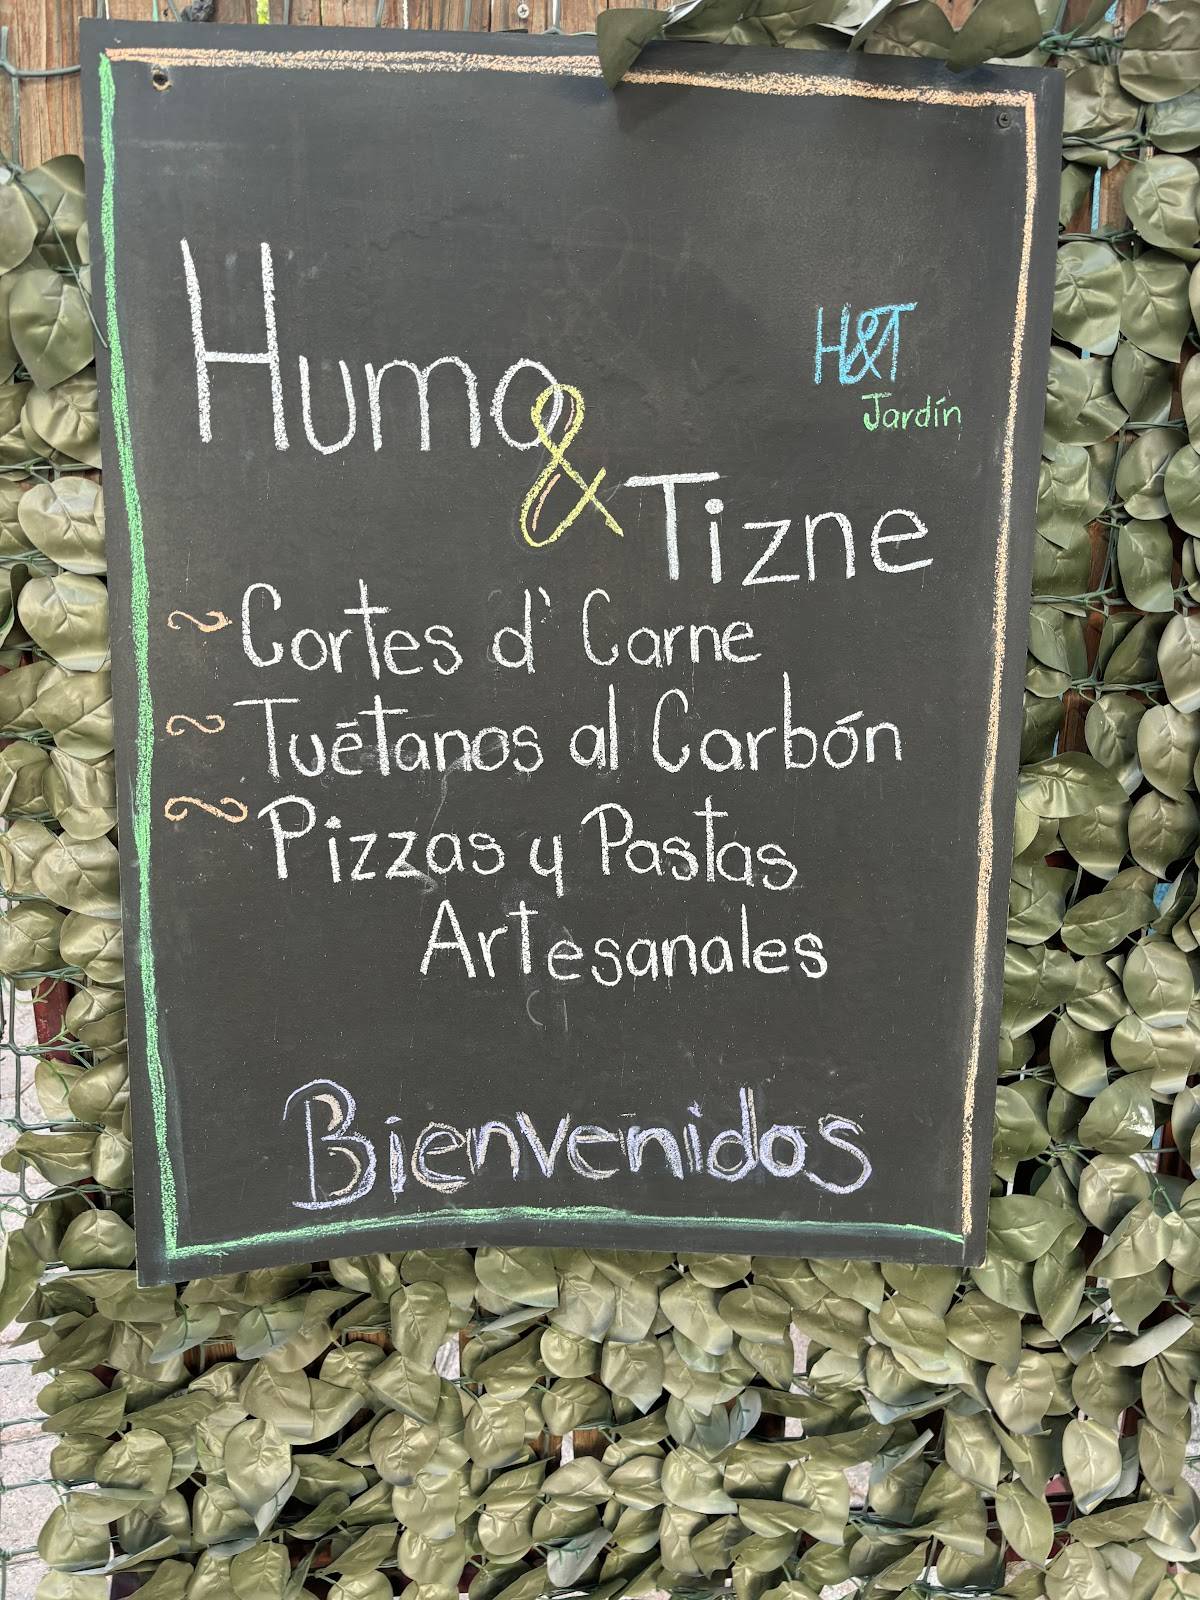 Humo
&
Tizne
H&T
Jardín
~ Cortes d' Carne
~ Tuétanos al Carbón
~ Pizzas y Pastas
Artesanales
Bienvenidos